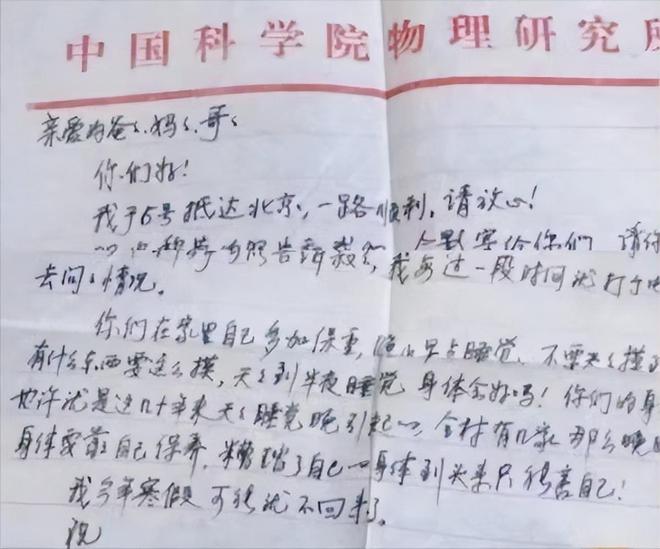 中国科学院物理研究所
亲爱的爸々、妈々、哥々
你们好!
我于6号抵达北京,一路顺利,请放心!
寄给你们 请你
去问々情况。我每过一段时间就打个电
你们在家里自己多加保重,晚上早点睡觉、不要天々摸
有什么东西要这么摸,天々到半夜睡觉 身体会好吗!你们的身
也许就是这几十年来天々睡觉晚引起的,全村有几家那么晚
身体要靠自己保养,糟蹋了自己的身体到头来只能害自己!
我今年寒假可能就不回来了。
祝